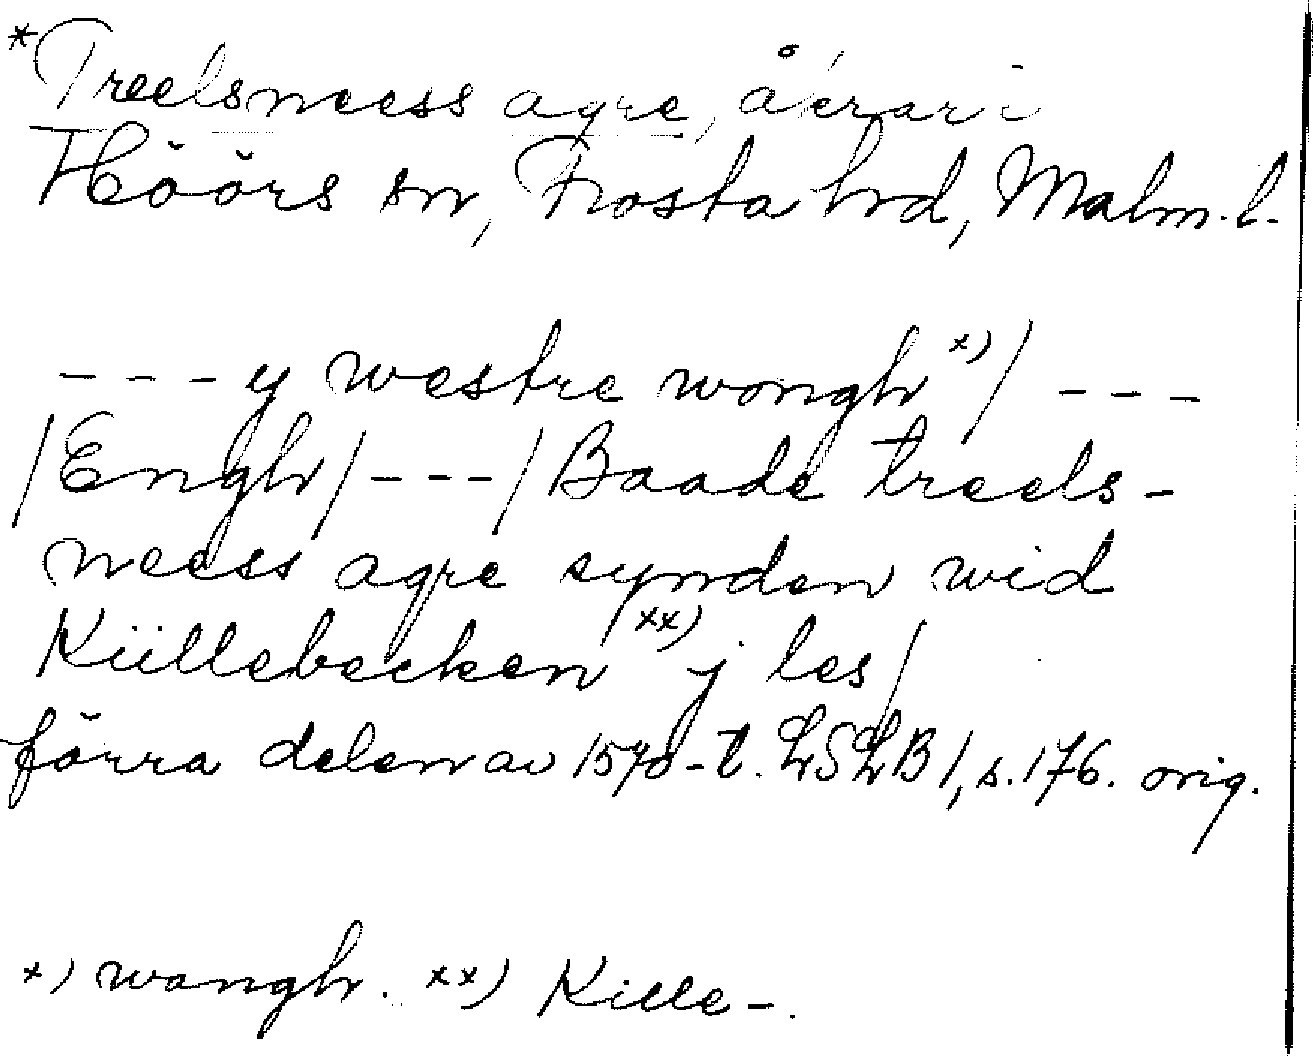 *Treelsneess agre, åkrar i
Höörs sn, Frosta hd, Malm. l.
--- y westre wongh x)/ ---
/Engh/---/Baade treels-
neess agre synden wid
Küllebecken xx) j les/
förra delen av 1570-t. LSLB 1, s. 176. orig.
x) wangh. xx) Kille-.